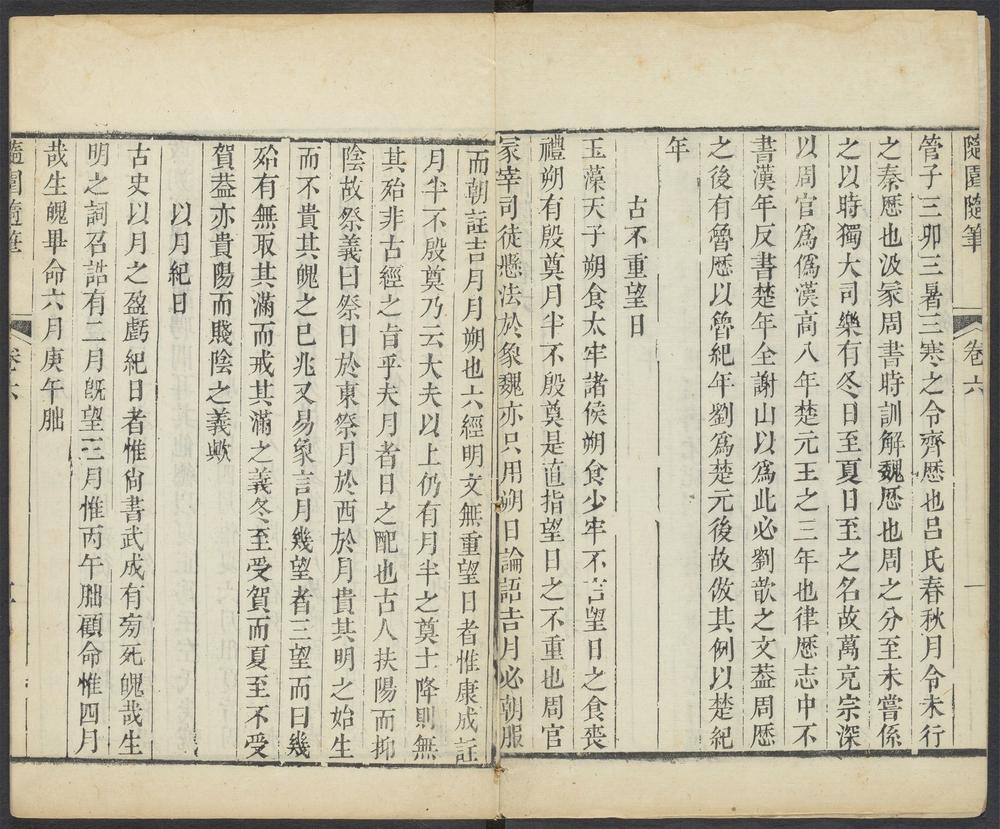 隨園隨筆 卷六 一
管子三卯三暑三寒之令齊厯也呂氏春秋月令未行
之秦厯也汲冢周書時訓解魏厯也周之分至未嘗係
之以時獨大司樂有冬日至夏日至之名故萬充宗深
以周官爲僞漢高八年楚元王之三年也律厯志中不
書漢年反書楚年全謝山以爲此必劉歆之文葢周厯
之後有魯厯以魯紀年劉爲楚元後故倣其例以楚紀
年
古不重望日
玉藻天子朔食太牢諸侯朔食少牢不言望日之食喪
禮朔有殷奠月半不殷奠是直指望日之不重也周官
冡宰司徒懸法於象魏亦只用朔日論語吉月必朝服
而朝註吉月月朔也六經明文無重望日者惟康成註
月半不殷奠乃云大夫以上仍有月半之奠士降則無
其殆非古經之旨乎夫月者日之配也古人扶陽而抑
陰故祭義曰祭日於東祭月於西於月貴其明之始生
而不貴其魄之已兆又易象言月幾望者三望而曰幾
殆有無取其滿而戒其滿之義冬至受賀而夏至不受
賀葢亦貴陽而賤陰之義歟
以月紀日
古史以月之盈虧紀日者惟尙書武成有旁死魄哉生
明之詞召誥有二月旣望三月惟丙午朏顧命惟四月
哉生魄畢命六月庚午朏
隨園隨筆 卷六